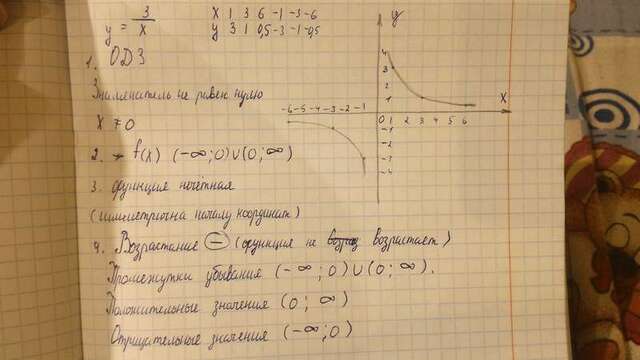 y = 3/x
x 1 3 6 -1 -3 -6
y 3 1 0,5 -3 -1 -0,5
1. ОДЗ
Знаменатель не равен нулю
x ≠ 0
2. f(x) (-∞;0)∪(0;∞)
3. функция нечётная
(симметрична началу координат)
4. Возрастание (–) (функция не возрастает)
Промежутки убывания (-∞;0)∪(0;∞).
Положительные значения (0;∞)
Отрицательные значения (-∞;0)
y
4
3
1
x
-6 -5 -4 -3 -2 -1
0 1 2 3 4 5 6
-1
-2
-3
-4